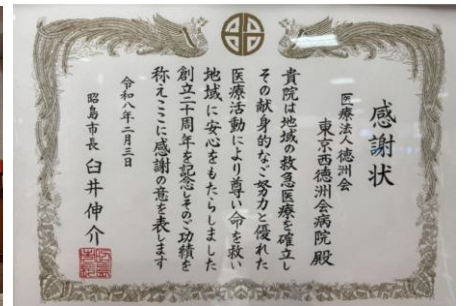 感謝状
医療法人徳洲会
東京西徳洲会病院 殿
貴院は地域の救急医療を確立し
その献身的なご努力と優れた
医療活動により尊い命を救い
地域に安心をもたらしました
創立二十周年を記念しそのご功績を
称えここに感謝の意を表します
令和八年二月三日
昭島市長 臼井伸介